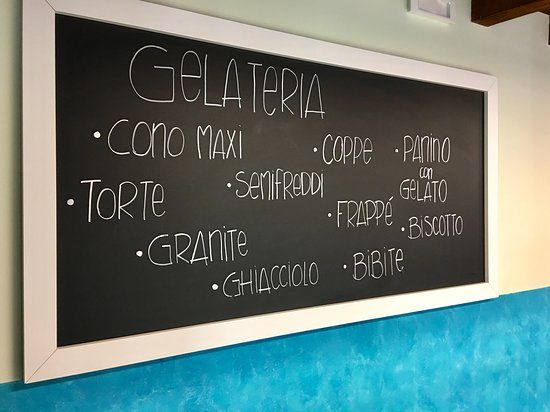 GELATERIA
• CONO MAXI
• COPPE
• PANINO
con
GELATO
• SEMIFREDDI
• TORTE
• FRAPPÉ
• BISCOTTO
• GRANITE
• BIBITE
• GHIACCIOLO